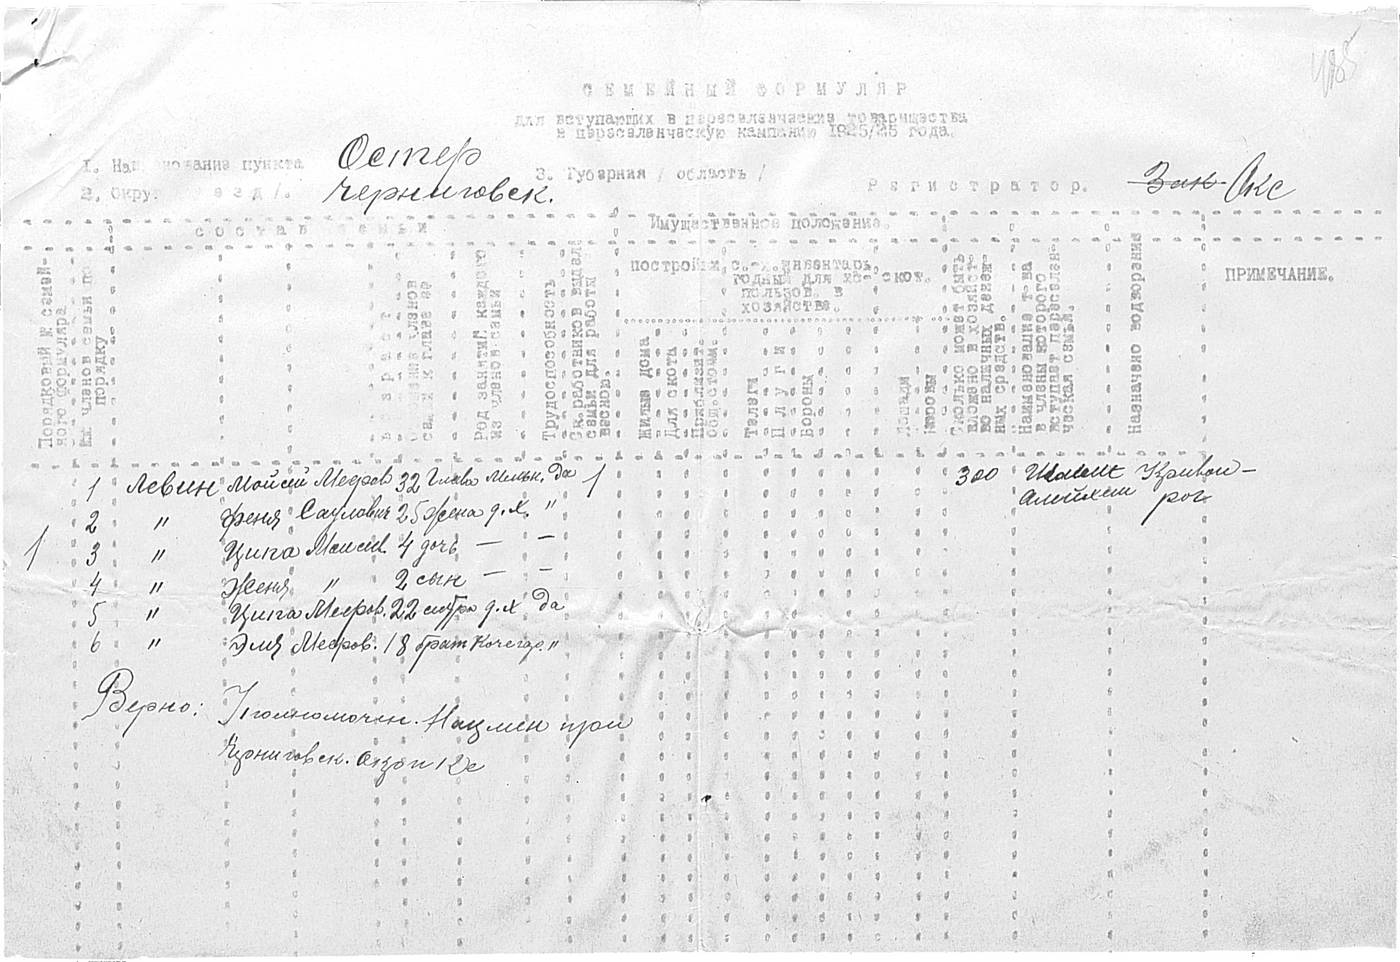 СЕМЕЙНЫЙ ФОРМУЛЯР
для вступающих в переселенческие товарищества
в переселенческую кампанию 1925/25 года.
1. Наименование пункта Остер
2. Округ Черниговск.
3. Губерния / область /
Регистратор. Окс
состав семьи
Имущественное положение.
постройки
с.-х. инвентарь
годный для
пользов. в
хозяйстве.
скот.
ПРИМЕЧАНИЕ.
Порядковый № семейного формуляра
№№ членов семьи по порядку
возраст
членов семьи к главе ее
Род занятий каждого из членов семьи
Трудоспособность
Ск. работников выдел. семьи для работы весною.
Жилые дома
Для скота
Приблизит. общ. стоим.
Телеги
Плуги
Бороны
Лошади
Коровы
Сколько может быть вложено в хозяйство наличных денежных средств.
Наименование т-ва в члены которого вступает переселенческая семья.
Назначено водворение
1 Левин Мойсей Мееров 32 Глава Мельн. да 1 300 Шолом Кривой –
Алейхем рог
2 " Феня Сауловн 25 жена д.х. "
1 3 " Ципа Моисеев. 4 дочь — –
4 " Женя " 2 сын — –
5 " Ципа Мееров. 22 сестра д.х да
6 " Эля Мееров. 18 брат Кочегар. "
Верно: Уполномочен. Нацмен при
Черниговск.